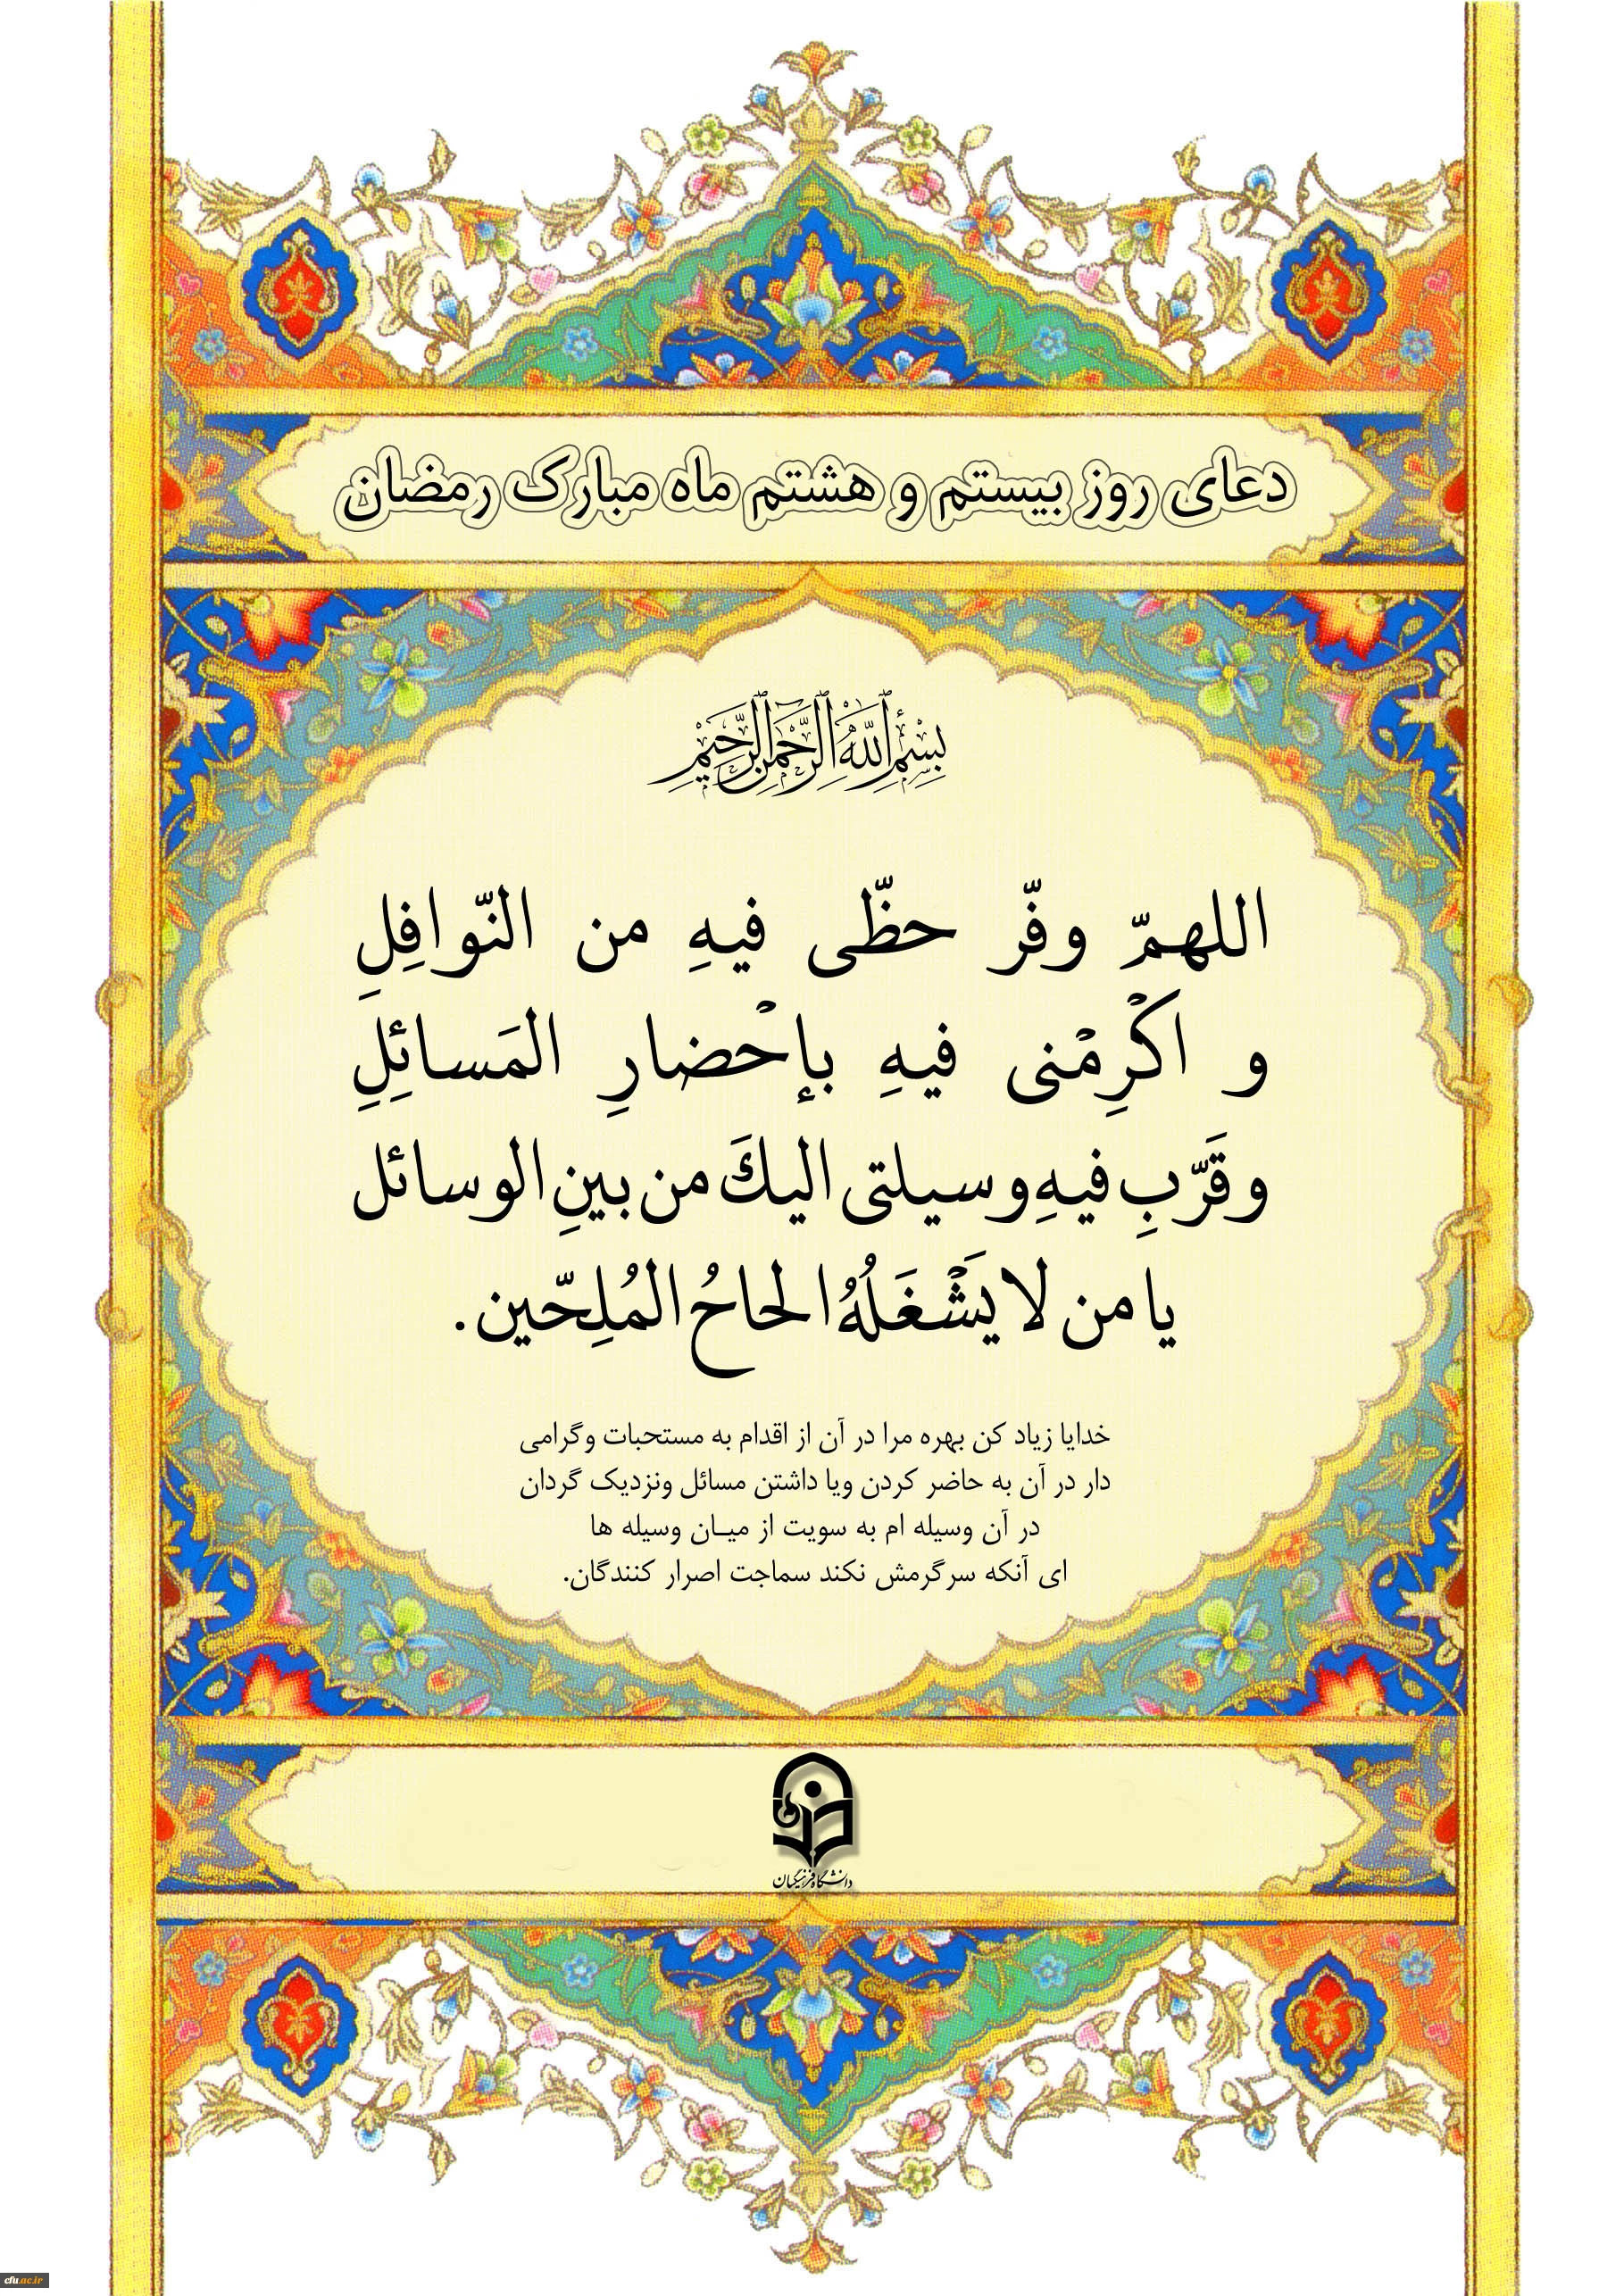 دعای روز بیستم و هشتم ماه مبارک رمضان
بِسْمِ اللَّهِ الرَّحْمَنِ الرَّحِيمِ
اللهمّ وفّر حظّی فیهِ من النّوافِلِ
و اکْرِمْنی فیهِ بإحْضارِ المَسائِلِ
وقَرّبِ فیهِ وسیلتی الیكَ من بینِ الوسائل
یا من لا یَشْغَلُهُ الحاحُ المُلِحّین.
خدایا زیاد کن بهره مرا در آن از اقدام به مستحبات وگرامی
دار در آن به حاضر کردن ویا داشتن مسائل ونزدیک گردان
در آن وسیله ام به سویت از میـان وسیله ها
ای آنکه سرگرمش نکند سماجت اصرار کنندگان.
دانشگاه فرهنگیان
cfu.ac.ir